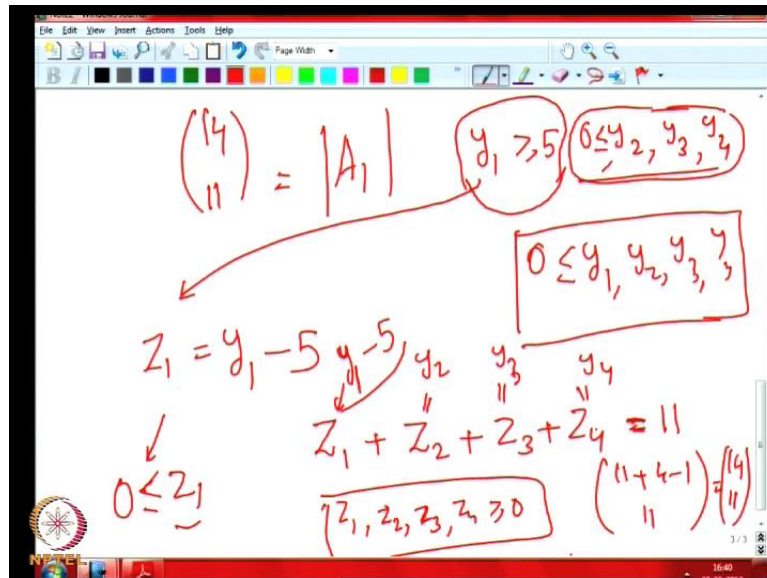 File Edit View Insert Actions Tools Help
Page Width
B I
(14 11) = |A₁| y₁ ≥ 5 0 ≤ y₂, y₃, y₄
0 ≤ y₁, y₂, y₃, y₃
Z₁ = y₁ - 5 y₁-5 y₂ y₃ y₄
|| || ||
Z₁ + Z₂ + Z₃ + Z₄ = 11
0 ≤ Z₁ Z₁, Z₂, Z₃, Z₄ ≥ 0 (11+4-1 11) = (14 11)
NPTEL
3 / 3
16:40